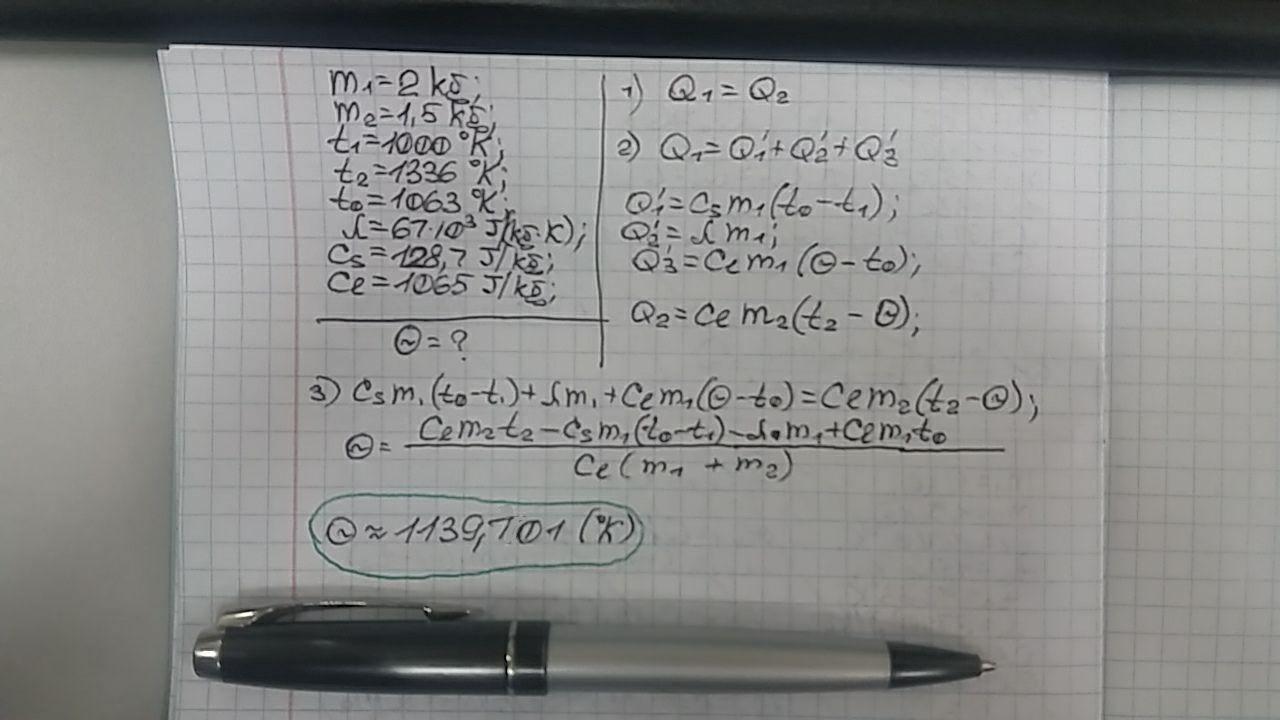 m₁=2 kg;
m₂=1,5 kg;
t₁=1000 °K;
t₂=1336 °K;
t₀=1063 °K;
λ=67·10³ J/(kg·K);
Cs=128,7 J/kg;
Ce=1065 J/kg;
Θ=?
1) Q₁=Q₂
2) Q₁=Q₁'+Q₂'+Q₃'
Q₁'=Csm₁(t₀-t₁);
Q₂'=λm₁;
Q₃'=Cem₁(Θ-t₀);
Q₂=Cem₂(t₂-Θ);
3) Csm₁(t₀-t₁)+λm₁+Cem₁(Θ-t₀)=Cem₂(t₂-Θ);
Θ= Cem₂t₂-Csm₁(t₀-t₁)-λ·m₁+Cem₁t₀
Ce(m₁+m₂)
Θ≈1139,701 (°K)